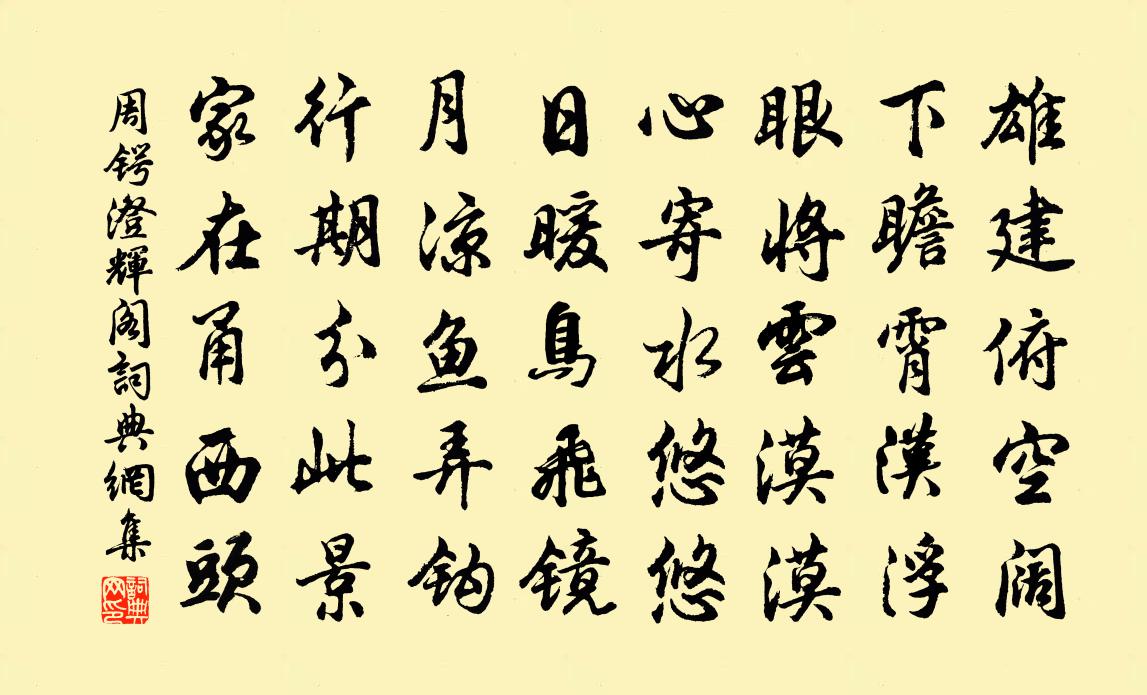 雄建俯空阔
下瞻霄漢浮
眼将雲漠漠
心寄水悠悠
日暖鳥飛镜
月涼鱼弄钩
行期分此景
家在甬西頭
周锷澄輝阁詞典網集
詞典网印